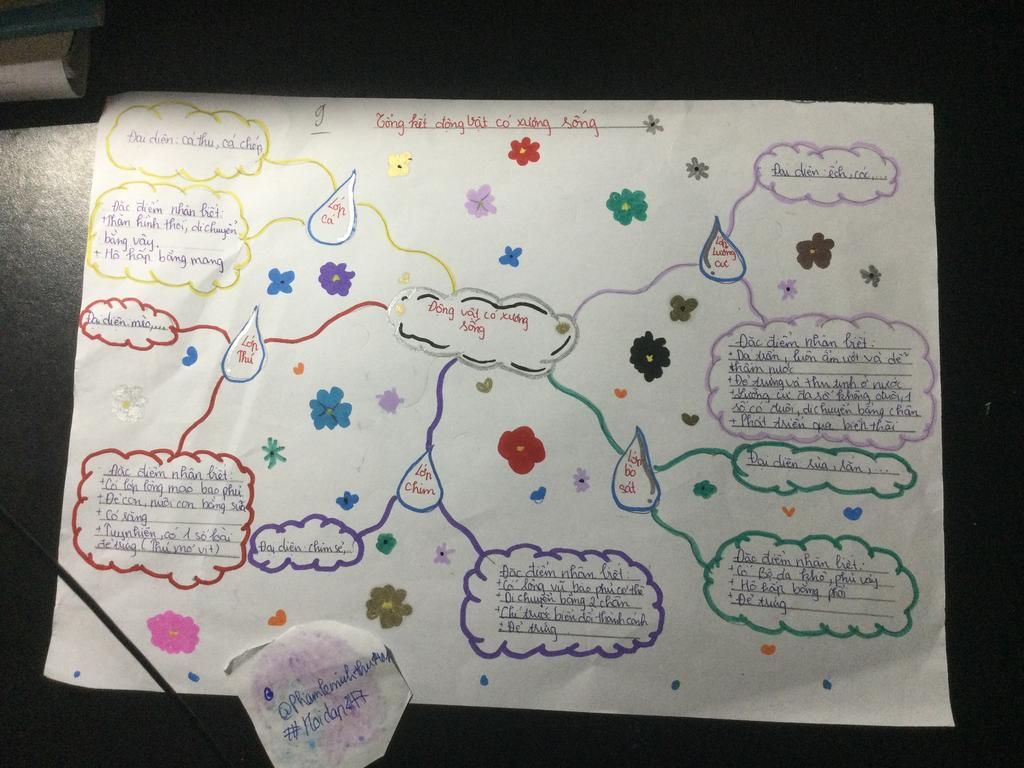 9
Tổng kết động vật có xương sống
Đại diện: cá thu, cá chép
Lớp
cá
Đặc điểm nhân biết:
+ Thân hình thoi, di chuyển
bằng vây.
+ Hô hấp bằng mang
Đại diện: ếch, cóc,...
Lớp
lưỡng
cư
Đặc điểm nhân biết:
+ Da trần, luôn ẩm ướt và dễ
thấm nước
+ Đẻ trứng và thụ tinh ở nước
+ Lưỡng cư đa số không đuôi, 1
số có đuôi, di chuyển bằng chân
+ Phát triển qua biến thái
Động vật có xương
sống
Đại diện: mèo,...
Lớp
Thú
Đặc điểm nhân biết:
+ Có lớp lông mao bao phủ
+ Đẻ con, nuôi con bằng sữa
+ Có răng
+ Tuy nhiên, có 1 số loài
đẻ trứng (Thú mỏ vịt)
Lớp
chim
Đại diện: chim sẻ,...
Đặc điểm nhân biết:
+ Có lông vũ bao phủ cơ thể
+ Di chuyển bằng 2 chân
+ Chi trước biến đổi thành cánh
+ Đẻ trứng
Lớp
bò
sát
Đại diện rùa, rắn,...
Đặc điểm nhân biết:
+ Có Bộ da khô, phủ vảy
+ Hô hấp bằng phổi
+ Đẻ trứng
#Hoidap247